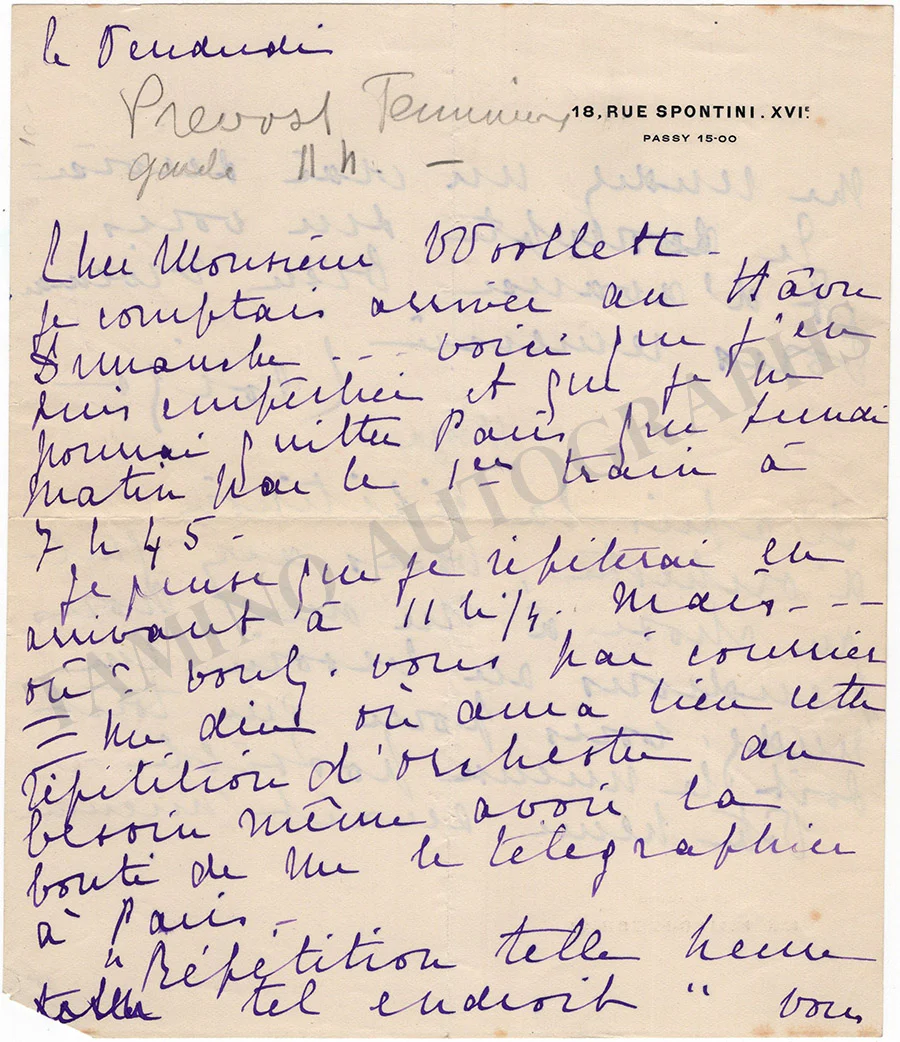 le Vendredi
Prevost
18, RUE SPONTINI. XVIᴱ
PASSY 15-00
11 h. —
Cher Monsieur Woollett -
Je comptais arriver au Hâvre
Dimanche - - - voici que j'en
suis empêchée et que je ne
pourrai quitter Paris que Lundi
matin par le 1er train à
7 h 45 -
Je pense que je répéterai en
arrivant à 11 h 1/4. Mais - - -
où? voulez-vous par courrier
me dire où aura lieu cette
répétition d'orchestre au
besoin même avoir la
bonté de me le télégraphier
à Paris -
"Répétition telle heure
tel endroit" vous
TAMINO AUTOGRAPHS